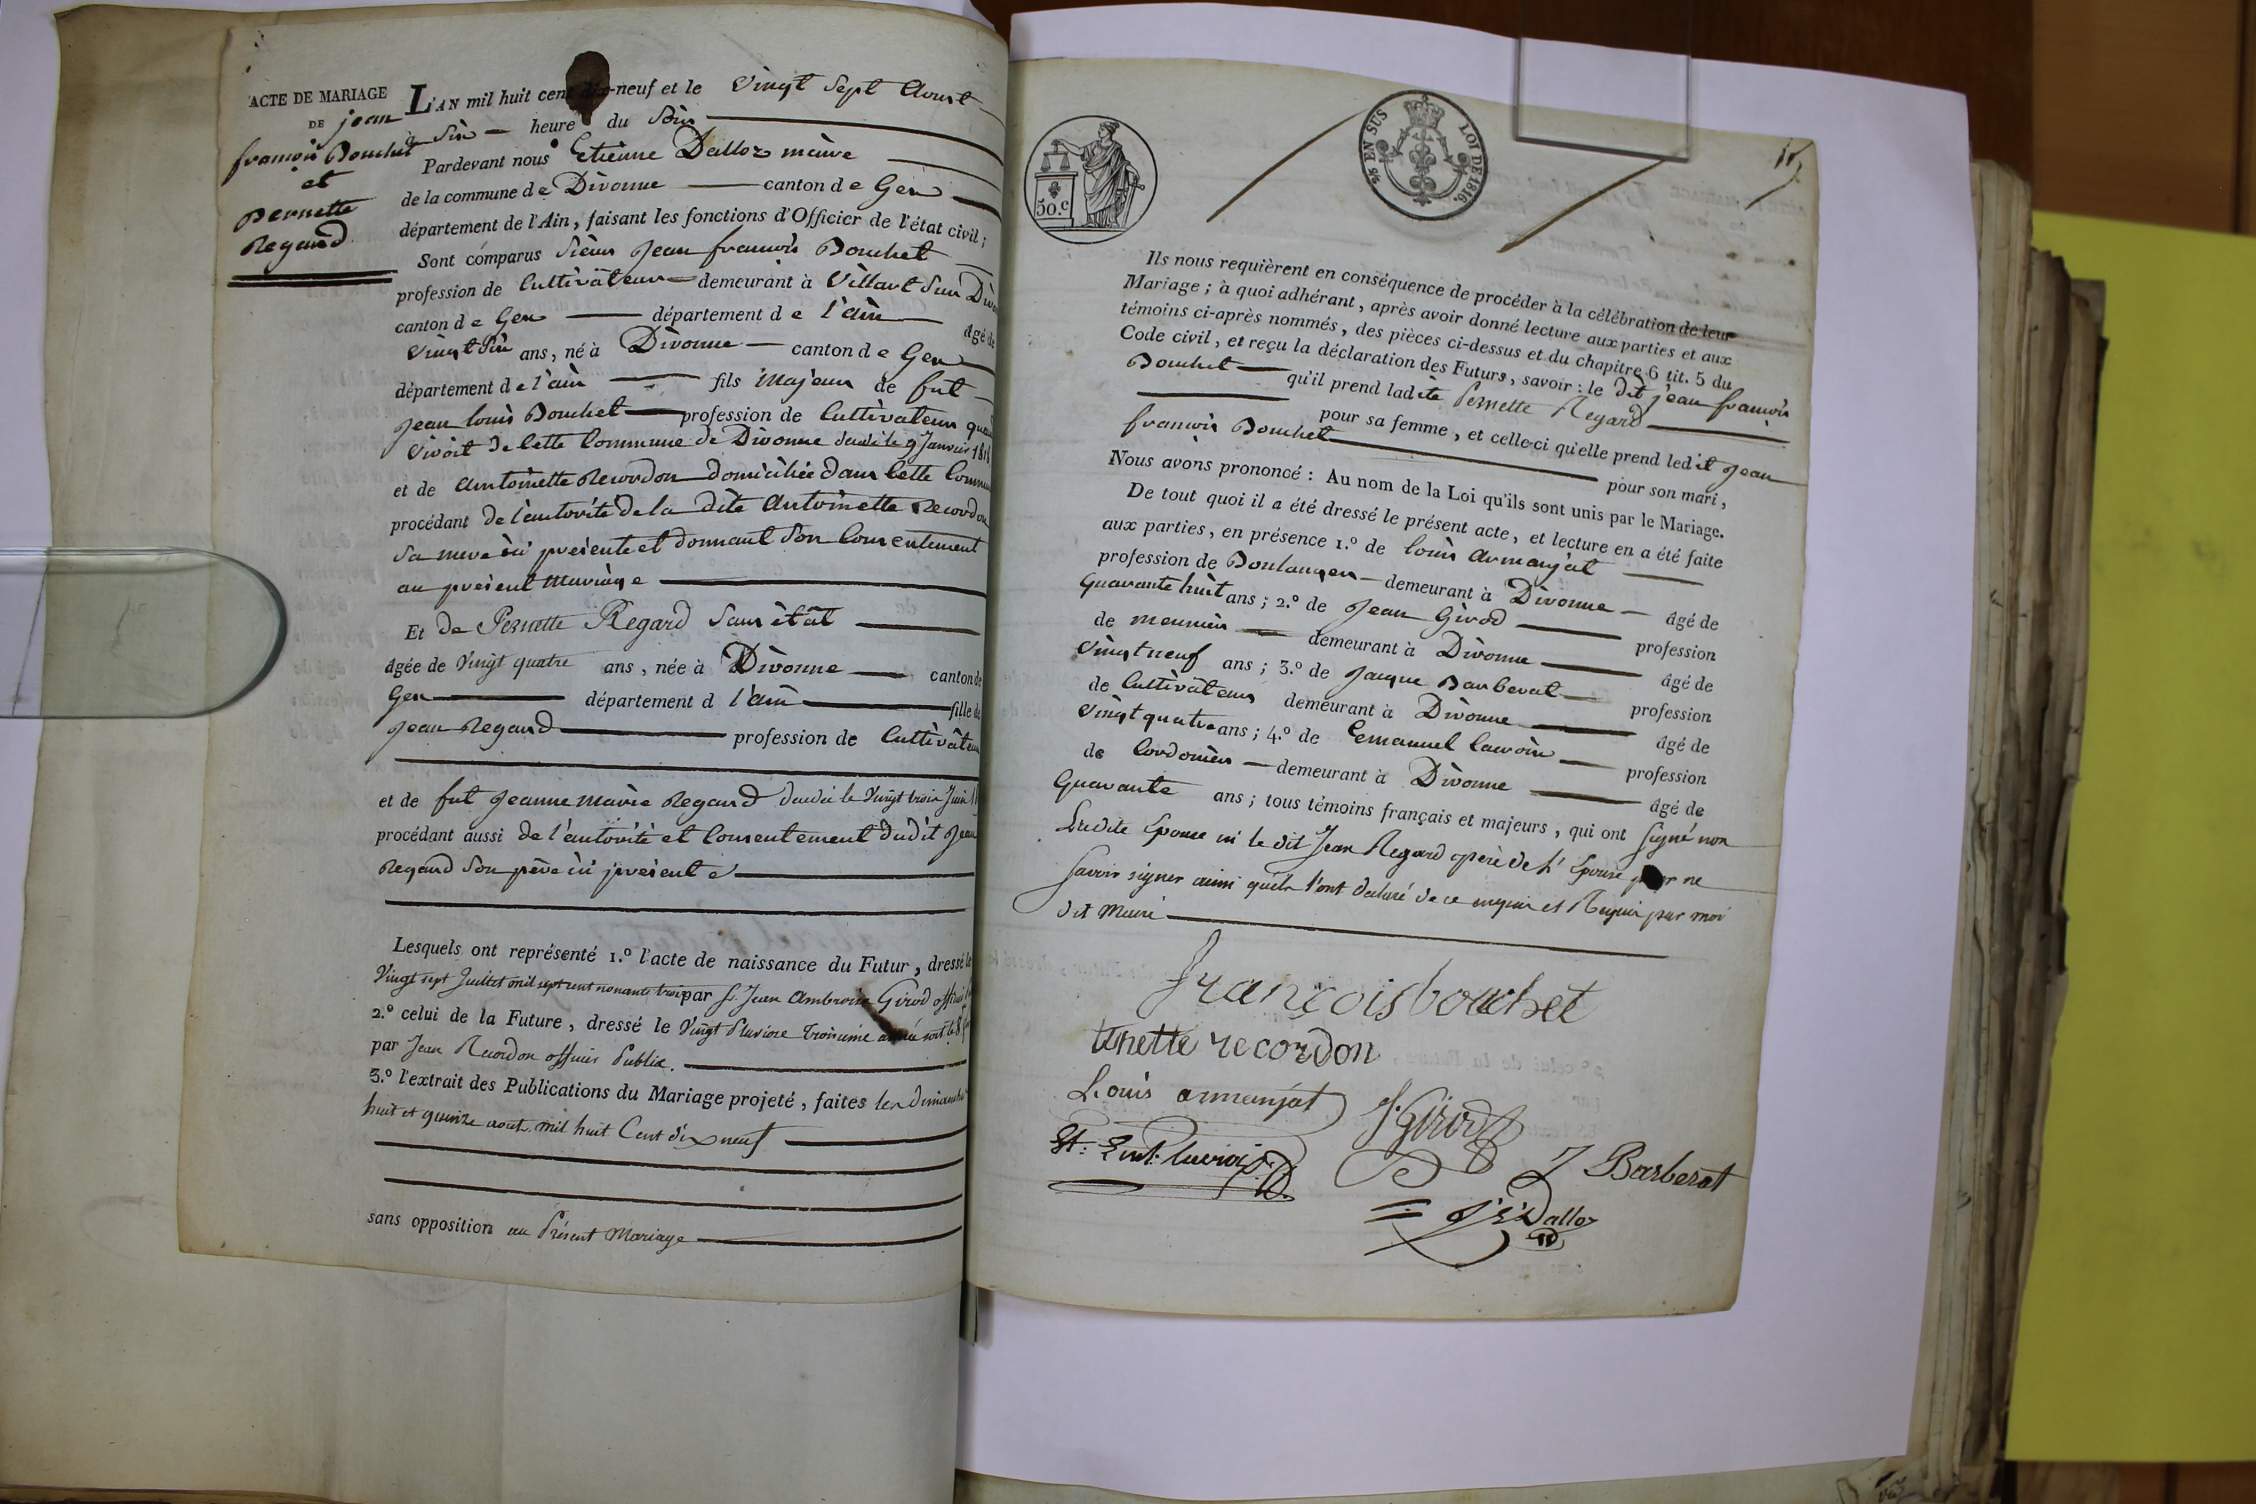 ACTE DE MARIAGE
DE jean
francois Bouchet
et
Pernette
Regard
L'AN mil huit cent dix-neuf et le Vingt Sept Aoust
à Six heure du Soir
Pardevant nous Etiènne Dalloz maire
de la commune de Divonne canton de Gex
département de l'Ain, faisant les fonctions d'Officier de l'état civil;
Sont comparus Sieur Jean francois Bouchet
profession de Cultivateur demeurant à Villard Sur
canton de Gex département de l'ain âgé de
Vingt Six ans, né à Divonne canton de Gex
département de l'ain fils Majeur de fut
Jean louis Bouchet profession de Cultivateur quand
vivoit de Cette Commune de Divonne decedé le 9 Janvier
et de Antoinette Recordon domiciliée dans Cette
procédant de l'autorité de la dite Antoinette Recordon
Sa mere ici presente et donnant Son Consentement
au present Mariage
Et de Pernette Regard Sans état
âgée de Vingt quatre ans, née à Divonne canton de
Gex département d l'ain fille de
Jean Regard profession de Cultivateur
et de fut Jeanne Marie Regard decedée le Vingt trois Juin
procédant aussi de l'autorité et Consentement dudit Jean
Regard Son père ici present e
Lesquels ont représenté 1.º l'acte de naissance du Futur, dressé le
Vingt sept Juillet mil sept cent nonante trois par Sr. Jean Ambroise Girod
2.º celui de la Future, dressé le Vingt Pluviose troisieme année
par Jean Recordon officier Public.
3.º l'extrait des Publications du Mariage projeté, faites les dimanches
huit et quinze aout mil huit Cent dix neuf
sans opposition au Présent Mariage
50.c
EN SUS
LOI DE 1816.
Ils nous requièrent en conséquence de procéder à la célébration de leur
Mariage; à quoi adhérant, après avoir donné lecture aux parties et aux
témoins ci-après nommés, des pièces ci-dessus et du chapitre 6 tit. 5 du
Code civil, et reçu la déclaration des Futurs, savoir: le dit jean francois
Bouchet qu'il prend ladite Pernette Regard
pour sa femme, et celle-ci qu'elle prend ledit Jean
francois Bouchet pour son mari,
Nous avons prononcé: Au nom de la Loi qu'ils sont unis par le Mariage.
De tout quoi il a été dressé le présent acte, et lecture en a été faite
aux parties, en présence 1.º de louis armanjat
profession de Boulanger demeurant à Divonne âgé de
Quarante huit ans; 2.º de Jean Girod profession
de meunier demeurant à Divonne âgé de
Vingt neuf ans; 3.º de Jacque Barberat profession
de Cultivateur demeurant à Divonne âgé de
Vingt quatre ans; 4.º de Emanuel profession
de Cordonier demeurant à Divonne âgé de
Quarante ans; tous témoins français et majeurs, qui ont Signé non
Ladite Epouse ni le dit Jean Regard père de l'Epouse pour ne
savoir signer ainsi quils l'ont declaré de ce enquis et Requis par moi
dit Maire
françois bouchet
tonette recordon
Louis armenjat
J. Girod
J Barberat
Dalloz